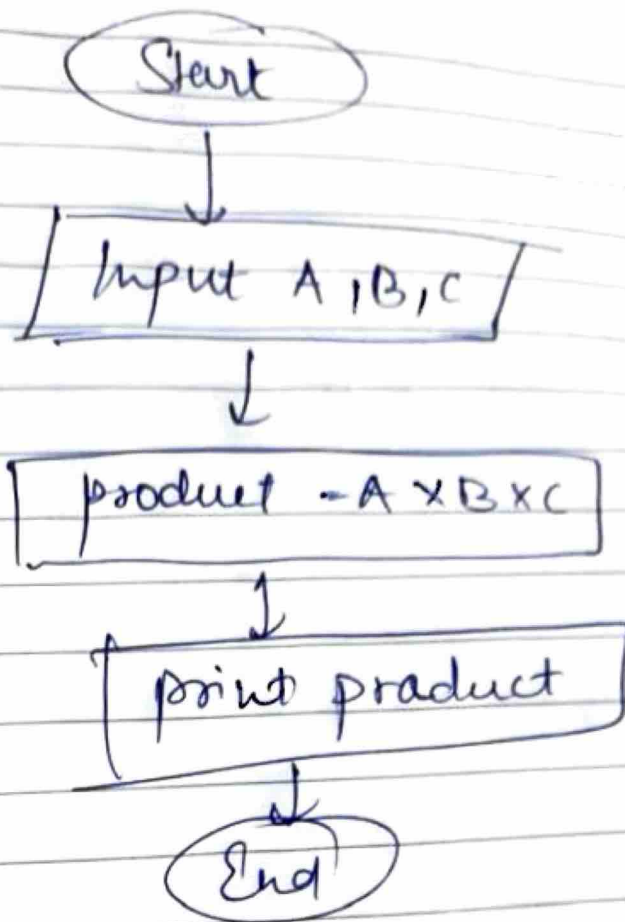 Start
Input A, B, C
product = A × B × C
print product
End